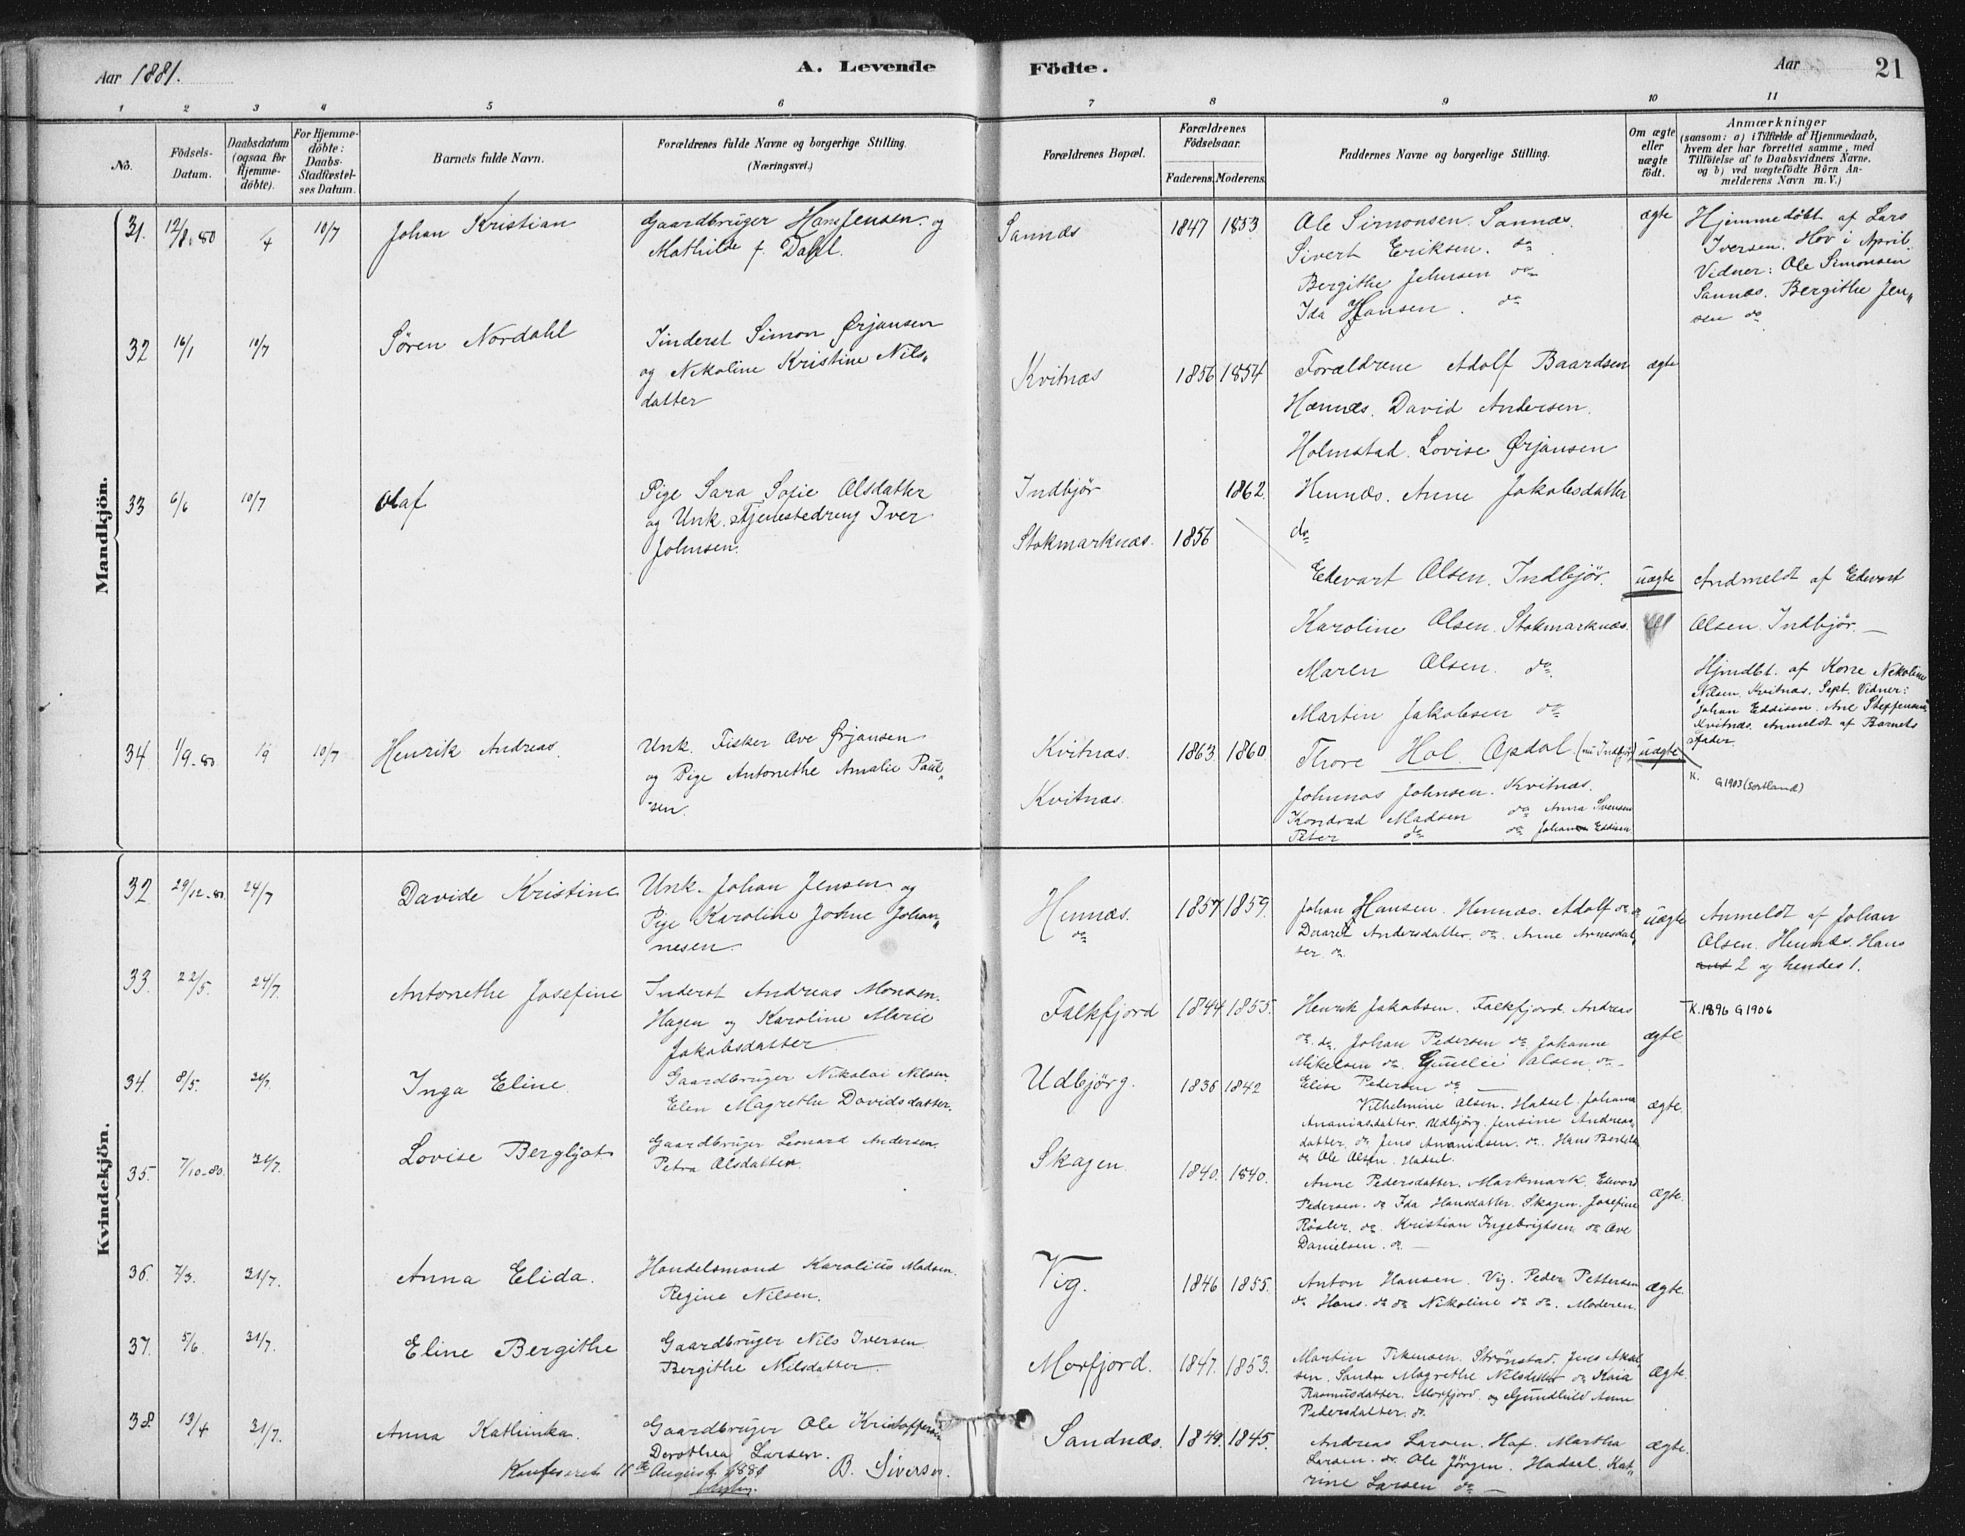 Aar 1881.
A. Levende
Födte.
Aar
21
1 2 3 4 5 6 7 8 9 10 11
No.
Födsels-Datum.
Daabsdatum (ogsaa for Hjemme-döbte).
For Hjemme-döbte: Daabs-Stadfæstel-ses Datum.
Barnets fulde Navn.
Forældrenes fulde Navne og borgerlige Stilling. (Næringsvei.)
Forældrenes Bopæl.
Forældrenes Födselsaar.
Faderens. Moderens.
Faddernes Navne og borgerlige Stilling.
Om ægte eller uægte födt.
Anmærkninger
(saasom: a) i Tilfælde af Hjemmedaab, hvem der har forrettet samme, med Tilföielse af to Daabsvidners Navne. og b) ved uægtefödte Börn An-melderens Navn m. V.)
Mandkjön.
31. 12/8. 80 /4 10/7 Johan Kristian
Gaardbruger Hans Jensen og
Mathilde f. Dahl.
Sannæs 1847 1853
Ole Simonsen. Sannæs.
Sivert Eriksen. do
Bergithe Johnsen do
Ida Hansen. do
ægte
Hjemmedöbt af Lars
Iversen. Hov i April.
Vidner: Ole Simonsen
Sannæs. Bergithe Jen„
sen do
32 16/1 10/7 Søren Nordahl
Inderst Simon Ørjansen
og Nekoline Kristine Nils„
datter
Kvitnæs 1856 1854
Forældrene Adolf Baardsen
Hænnæs. David Andersen.
Holmstad. Lovise Ørjansen
Hennæs. Anne Jakobsdatter
do
ægte
33 6/6 10/7 Olaf
Pige Sara Sofie Olsdatter
og Unk. Tjenestedreng Iver
Johnsen.
Indbjör 1862.
Stokmarknæs. 1856
Edevart Olsen. Indbjör.
Karoline Olsen. Stokmarknæs.
Maren Olsen. do
Martin Jakobsen do
uægte
Andmeldt af Edevart
Olsen. Indbjör. —
34 1/9-80 /9 10/7 Henrik Andreas.
Unk. Fisker Ove Ørjansen
og Pige Antonethe Amalie Paul„
sen.
Kvitnæs. 1863. 1860.
Kvitnæs.
Thore Hol. Opdal (nu Indbjör)
Johannas Johnsen. Kvitnæs.
Kondrad Madsen do Anna Svensen
Peter do do Johan Eddisen
uægte
Hjmdbt. af Kone Nekoline
Nilsen. Kvitnæs. Sept. Vidner:
Johan Eddisen. Ane Steffensen
Kvitnæs. Anmeldt af Barnets
Fader.
K. G 1903 (Sortland)
Kvindekjön.
32 29/12-80 24/7 Davide Kristine
Unk. Johan Jensen og
Pige Karoline Johan„
nesen
Hennæs. do 1857 1859.
Johan Hansen. Hennæs. Adolf do do
Andersdatter. do. Anne Arnesdat„
ter. do
uægte
Anmeldt af Johan
Olsen. Hennæs. Hans
2 og hendes 1.
33. 22/5. 24/7. Antonethe Josefine
Inderst Andreas Monsen.
Hagen og Karoline Marie
Jakobsdatter
Falkfjord 1844 1855.
Henrik Jakobsen. Falkfjord. Andreas
do. do. Johan Pedersen do Johanne
Mikelsen do. Olsen do
Elise Pedersen do
ægte.
K. 1896 G 1906
34. 8/5. 24/7. Inga Eline.
Gaardbruger Nikolai Nilsen.
Elen Magrethe Davidsdatter.
Udbjörg. 1836 1842
Vilhelmine Olsen. Hadsel. Johanna
Ananiasdatter. Udbjörg. Jensine Andreas„
datter. do Jens Ananidsen. do. Hans
do Ole Olsen. Hadsel.
ægte.
35. 7/10-80. 31/7. Lovise Bergljot
Gaardbruger Leonard Andersen.
Petra Olsdatter.
Skagen. 1840. 1840.
Anne Pedersdatter. Markmark. Edvard
Pedersen. do Ida Hansdatter. Skagen. Josefine
Røsler. do. Kristian Ingebrigtsen do Ove
Danielsen. do —
ægte.
36. 7/3. 31/7. Anna Elida.
Handelsmand Karolius Madsen.
Regine Nilsen.
Vig. 1846 1855.
Anton Hansen. Vig. Peder Pettersen
do Hans. do do Nikoline do do. Moderen.
ægte.
37. 5/6. 31/7. Eline Bergithe
Gaardbruger Nils Iversen
Bergithe Nilsdatter
Morfjord. 1847. 1853.
Martin. Strönstad. Jens
sen. Magrethe Nilsdatter do Kaia
Rasmusdatter. Morfjord. og Gundhild Anne
Pedersdatter. do.
ægte.
38. 13/4 31/7. Anna Kathinka.
Gaardbruger Ole Kristoffersen
Dorothea Larsen.
Sandnæs. 1849. 1845.
Andreas Larsen. Haf. Martha
Larsen. do. Ole Jörgen. Hadsel. Kat„
rine Larsen do —
ægte.
Konfereret 11te August 1881 B. Sivertsen.